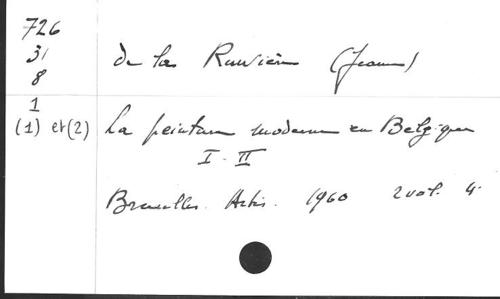 726
31
8
1
(1) et (2)
de la Ruwière (Jeanne)
La peinture moderne en Belgique
I - II
Bruxelles. Artis. 1960 2 vol. 4°